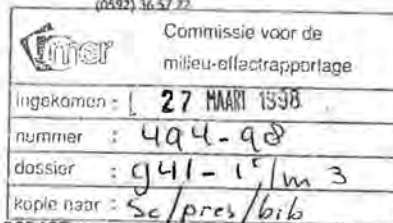 (0592) 36 57 22
mer
Commissie voor de
milieu-effectrapportage
ingekomen : 27 MAART 1998
nummer : 494-98
dossier : 941-15/m 3
kopie naar : Sc/pres/bib